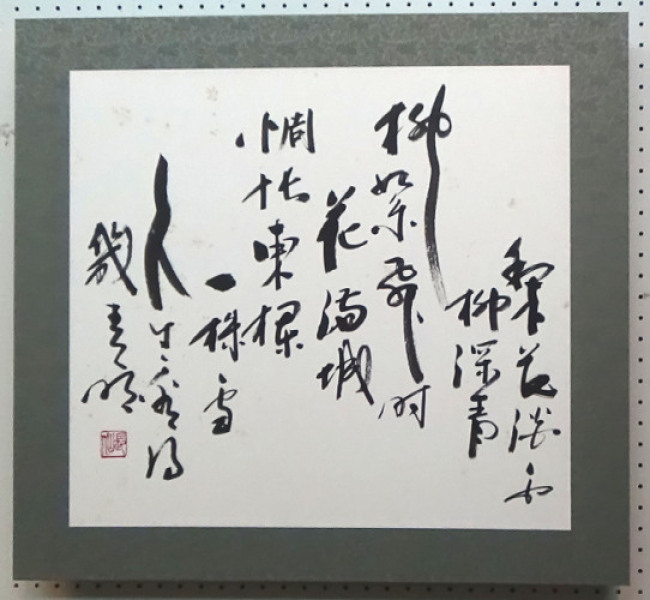 梨花淡白
柳深青
柳絮飛时
花滿城
惆怅東欄
一株雪
人生看得
幾清明